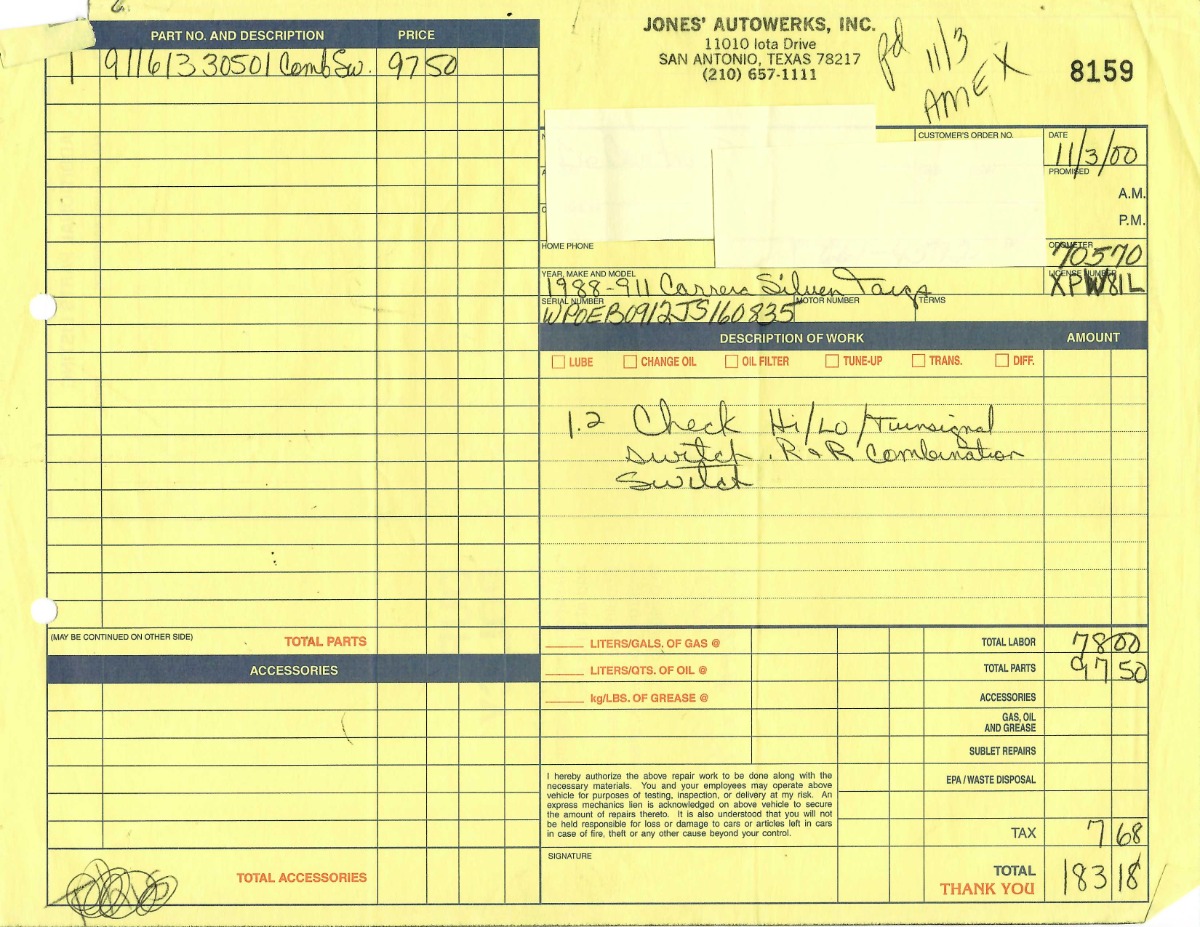 PART NO. AND DESCRIPTION PRICE
1 91161330501 Comb Sw. 97 50
JONES' AUTOWERKS, INC.
11010 Iota Drive
SAN ANTONIO, TEXAS 78217
(210) 657-1111
pd 11/3
AMEX
8159
CUSTOMER'S ORDER NO.
DATE
11/3/00
PROMISED
A.M.
P.M.
HOME PHONE
ODOMETER
70570
YEAR, MAKE AND MODEL
1988-911 Carrera Silver Targa
LICENSE NUMBER
XPW81L
SERIAL NUMBER
WP0EB0912JS160835
MOTOR NUMBER
TERMS
DESCRIPTION OF WORK AMOUNT
LUBE CHANGE OIL OIL FILTER TUNE-UP TRANS. DIFF.
1.2 Check Hi/Lo/Turnsignal
switch. R&R Combination
Switch
(MAY BE CONTINUED ON OTHER SIDE) TOTAL PARTS
ACCESSORIES
TOTAL ACCESSORIES
LITERS/GALS. OF GAS @
LITERS/QTS. OF OIL @
kg/LBS. OF GREASE @
TOTAL LABOR 78 00
TOTAL PARTS 97 50
ACCESSORIES
GAS, OIL
AND GREASE
SUBLET REPAIRS
EPA / WASTE DISPOSAL
I hereby authorize the above repair work to be done along with the
necessary materials. You and your employees may operate above
vehicle for purposes of testing, inspection, or delivery at my risk. An
express mechanics lien is acknowledged on above vehicle to secure
the amount of repairs thereto. It is also understood that you will not
be held responsible for loss or damage to cars or articles left in cars
in case of fire, theft or any other cause beyond your control.
SIGNATURE
TAX 7 68
TOTAL 183 18
THANK YOU